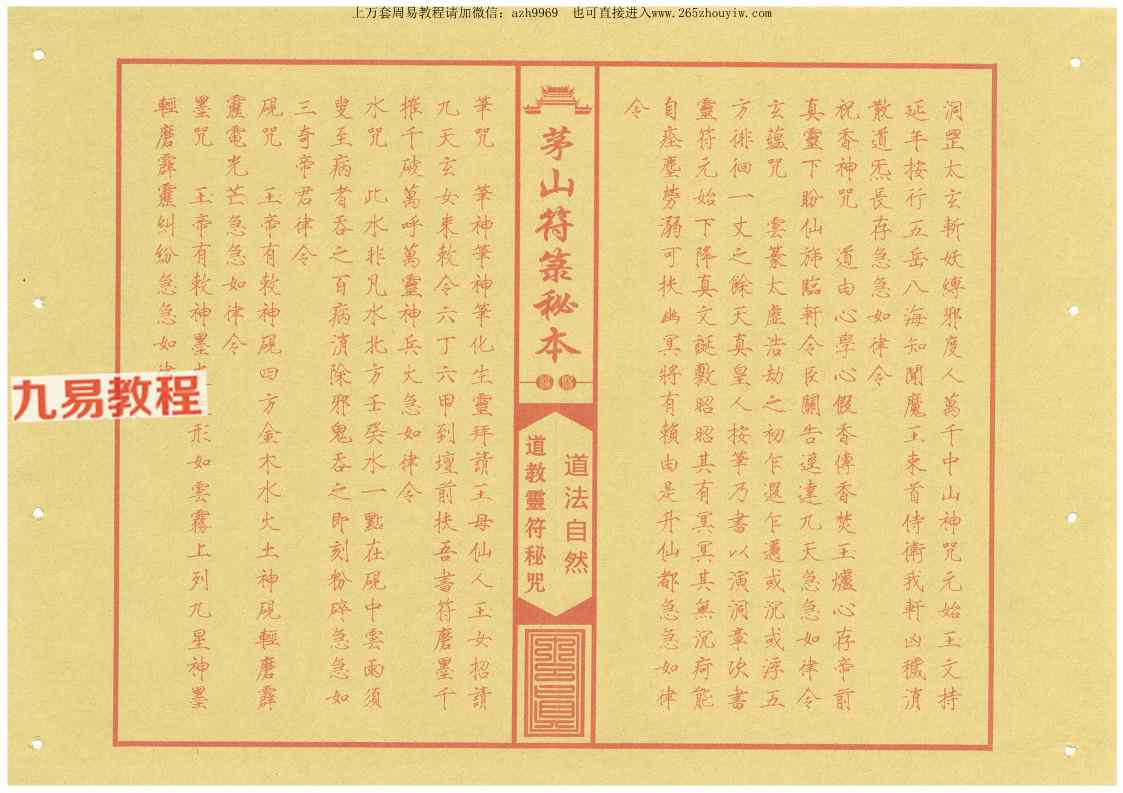 上万套周易教程请加微信：azh9969　也可直接进入www.265zhouyiw.com
洞罡太玄斬妖縛邪度人萬千中山神咒元始玉文持
延年按行五岳八海知聞魔王束首侍衛我軒凶穢消
散道炁長存急急如律令
祝香神咒　道由心學心假香傳香焚玉爐心存帝前
真靈下盼仙旆臨軒令臣關告逕達九天急急如律令
玄蘊咒　雲篆太虛浩劫之初乍遐乍邇或沉或浮五
方徘徊一丈之餘天真皇人按筆乃書以演洞章次書
靈符元始下降真文誕敷昭昭其有冥冥其無沉疴能
自痊塵勞溺可扶幽冥將有賴由是升仙都急急如律
令
茅山符箓秘本
道法自然
道教靈符秘咒
筆咒　筆神筆神筆化生靈拜請王母仙人玉女招請
九天玄女来敕令六丁六甲到壇前扶吾書符磨墨千
推千破萬呼萬靈神兵火急如律令
水咒　此水非凡水北方壬癸水一點在硯中雲雨須
叟至病者吞之百病消除邪鬼吞之即刻粉碎急急如
三奇帝君律令
硯咒　玉帝有敕神硯四方金木水火土神硯輕磨霹
靂電光芒急急如律令
墨咒　玉帝有敕神墨形如雲霧上列九星神墨
輕磨霹靂糾紛急急如律
九易教程